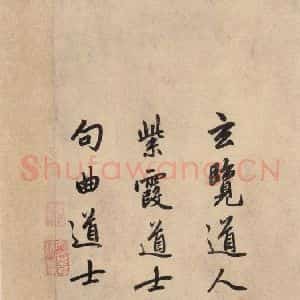 玄覽道人
紫霞道士
句曲道士
Shufawang.CN